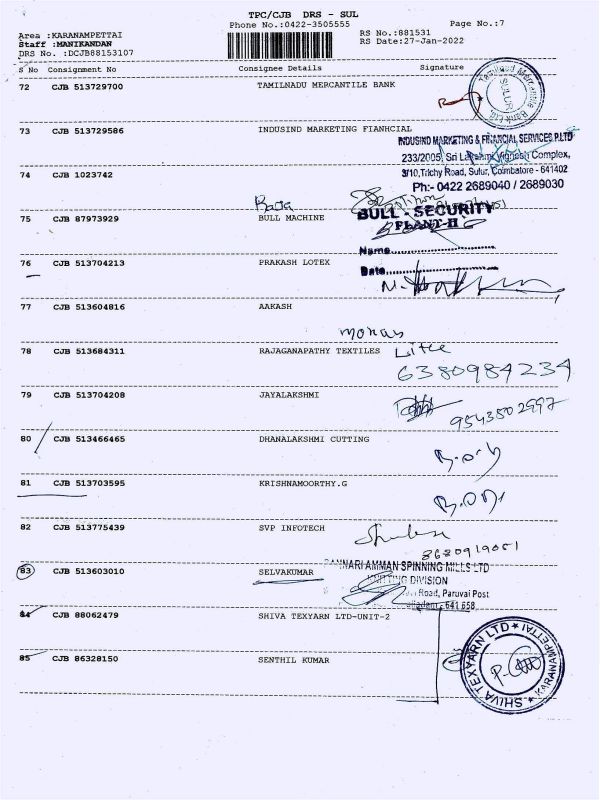 TPC/CJB DRS - SUL
Phone No.:0422-3505555
Page No.:7
Area :KARANAMPETTAI
Staff :MANIKANDAN
DRS No. :DCJB88153107
RS No.:881531
RS Date:27-Jan-2022
S No Consignment No Consignee Details Signature
72 CJB 513729700 TAMILNADU MERCANTILE BANK
Tamilnad Mercantile Bank Ltd.
SULUR
73 CJB 513729586 INDUSIND MARKETING FIANHCIAL
INDUSIND MARKETING & FINANCIAL SERVICES P.LTD
233/2005, Sri Lakshmi Vignesh Complex,
3/10, Trichy Road, Sulur, Coimbatore - 641402
Ph:- 0422 2689040 / 2689030
74 CJB 1023742
75 CJB 87973929 BULL MACHINE
BULL - SECURITY
PLANT-II
Name
Date
76 CJB 513704213 PRAKASH LOTEX
77 CJB 513604816 AAKASH
78 CJB 513684311 RAJAGANAPATHY TEXTILES
6380984234
79 CJB 513704208 JAYALAKSHMI
9543502997
80 CJB 513466465 DHANALAKSHMI CUTTING
81 CJB 513703595 KRISHNAMOORTHY.G
82 CJB 513775439 SVP INFOTECH
8680919051
83 CJB 513603010 SELVAKUMAR
BANNARI AMMAN SPINNING MILLS LTD
KNITTING DIVISION
Road, Paruvai Post
Palladam - 641 658
84 CJB 88062479 SHIVA TEXYARN LTD-UNIT-2
85 CJB 86328150 SENTHIL KUMAR
SHIVA TEXYARN LTD ★ KARANAMPETTAI ★